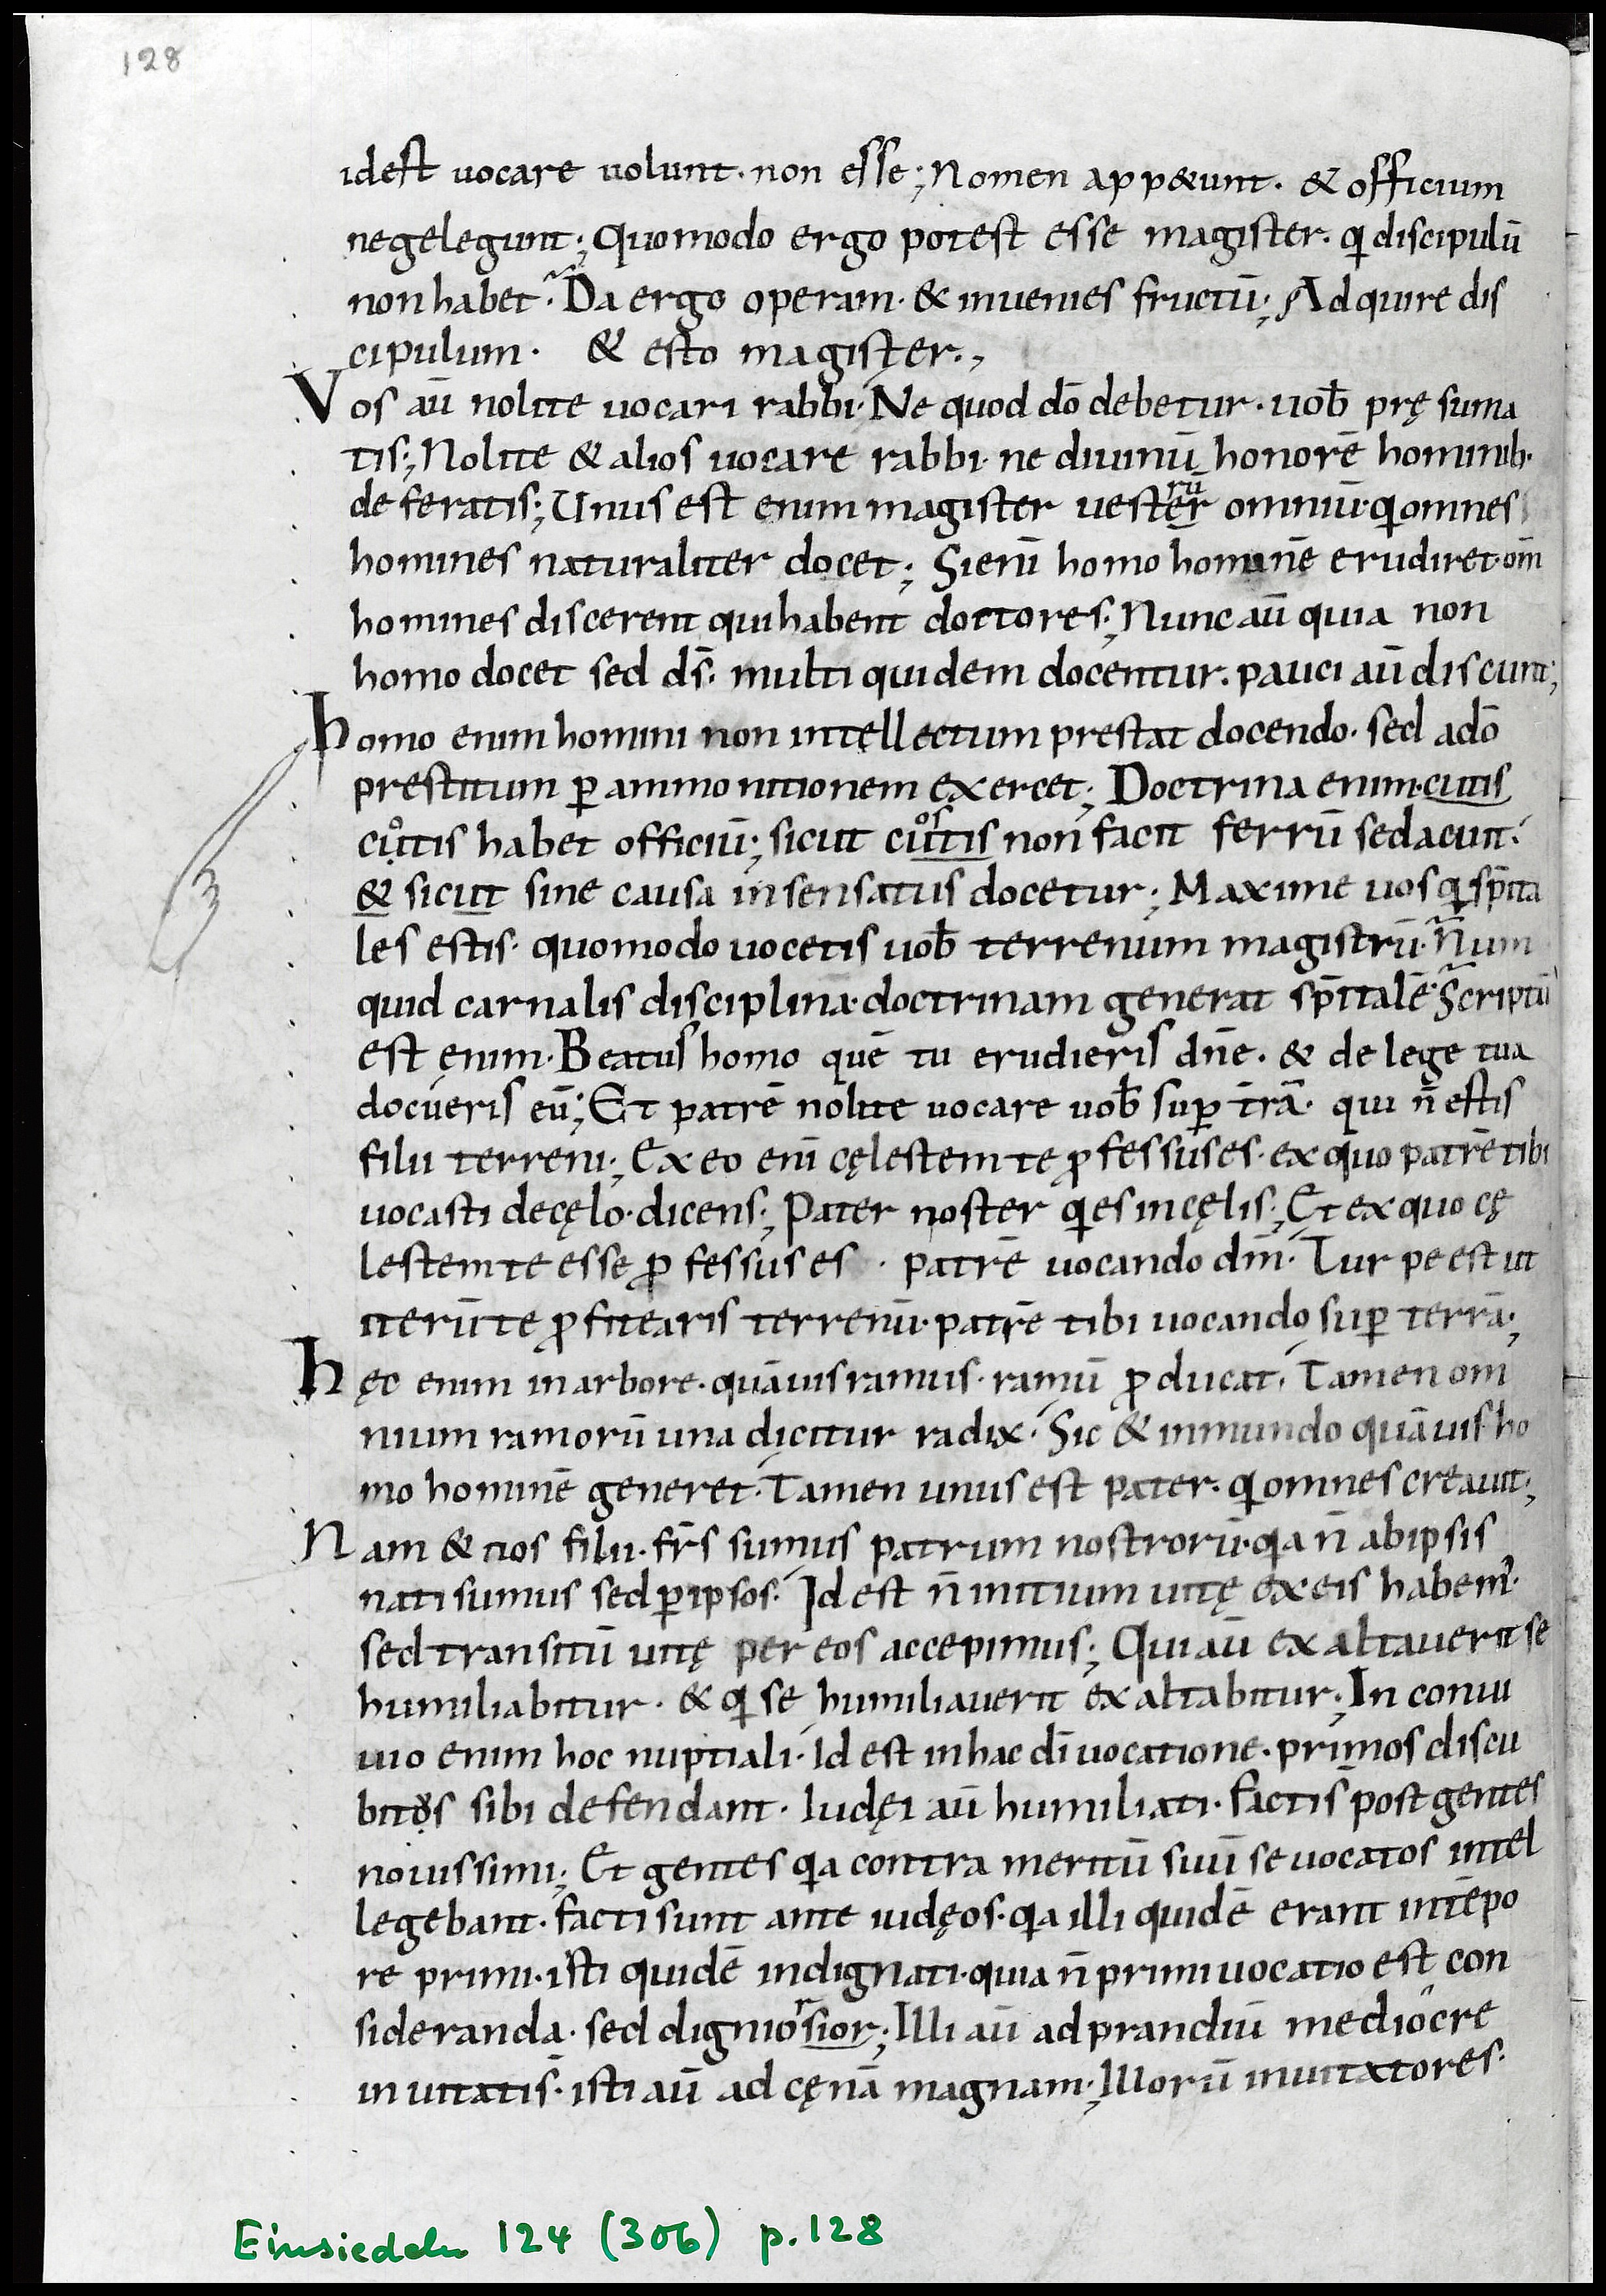 128
idest uocare uolunt. non esse; Nomen app&unt. & officium
negelegunt; Quomodo ergo potest esse magister. q discipulū
non habet. Da ergo operam. & inuenies fructū; Adquire dis
cipulum. & esto magister.,
Vos aū nolite uocari rabbi. Ne quod dō debetur. uob̄ pręsuma
tis; Nolite & alios uocare rabbi. ne diuinū honorē hominib.
deferatis; Unus est enim magister uesterr̄u omniū. q omnes
homines naturaliter docet; Si enī homo hominē erudiret. om̄
homines discerent qui habent doctores; Nunc aū quia non
homo docet sed d̄s. multi quidem docentur. pauci aū discunt;
Homo enim homini non intellectum prestat docendo. sed adō
prestitum p̄ ammonitionem exercet; Doctrina enim cutis
cotis habet officiū; sicut costis non facit ferrū sed acuit.
& sicut sine causa insensatus docetur; Maxime uos q sp̄ita
les estis. quomodo uocetis uob̄ terrenum magistrū. Num
quid carnalis disciplina. doctrinam generat sp̄italē. Scriptū
est enim. Beatus homo quē tu erudieris dn̄e. & de lege tua
docueris eū; Et patrē nolite uocare uob̄ sup̄ tr̄a. qui n̄ estis
filii terreni; Ex eo enī cęlestem te p̄fessus es. ex quo patrē tibi
uocasti de cęlo. dicens; Pater noster q es in cęlis; Et ex quo cę
lestem te esse p̄fessus es. patrē uocando dm̄. Turpe est ut
iterū te p̄fitearis terrenū. patrē tibi uocando sup̄ terrā;
Hęc enim in arbore. quāuis ramus. ramū p̄ducat. Tamen om
nium ramorū una dicitur radix. Sic & in mundo quāuis ho
mo hominē generet. Tamen unus est pater. q omnes creauit;
Nam & nos filii. fr̄s sumus patrum nostrorū. qa n̄ ab ipsis
nati sumus sed p̄ ipsos. Id est n̄ initium uitę ex eis habem᾽.
sed transitū uitę per eos accepimus; Qui aū exaltauerit se
humiliabitur. & q se humiliauerit exaltabitur; In conui
uio enim hoc nuptiali. Id est in hac dī uocatione. primos discu
bitos sibi defendant. Iudęi aū humiliati. factis post gentes
nouissimi; Et gentes qa contra meritū suū se uocatos intel
legebant. facti sunt ante iudęos. qa illi quidē erant intēpo
re primi. isti quidē indignati. quia n̄ primi uocatio est con
sideranda. sed dignior sior; Illi aū ad prandiū mediocre
inuitatis. isti aū ad cęnā magnam; Illorū inuitatores.
Einsiedeln 124 (306) p. 128